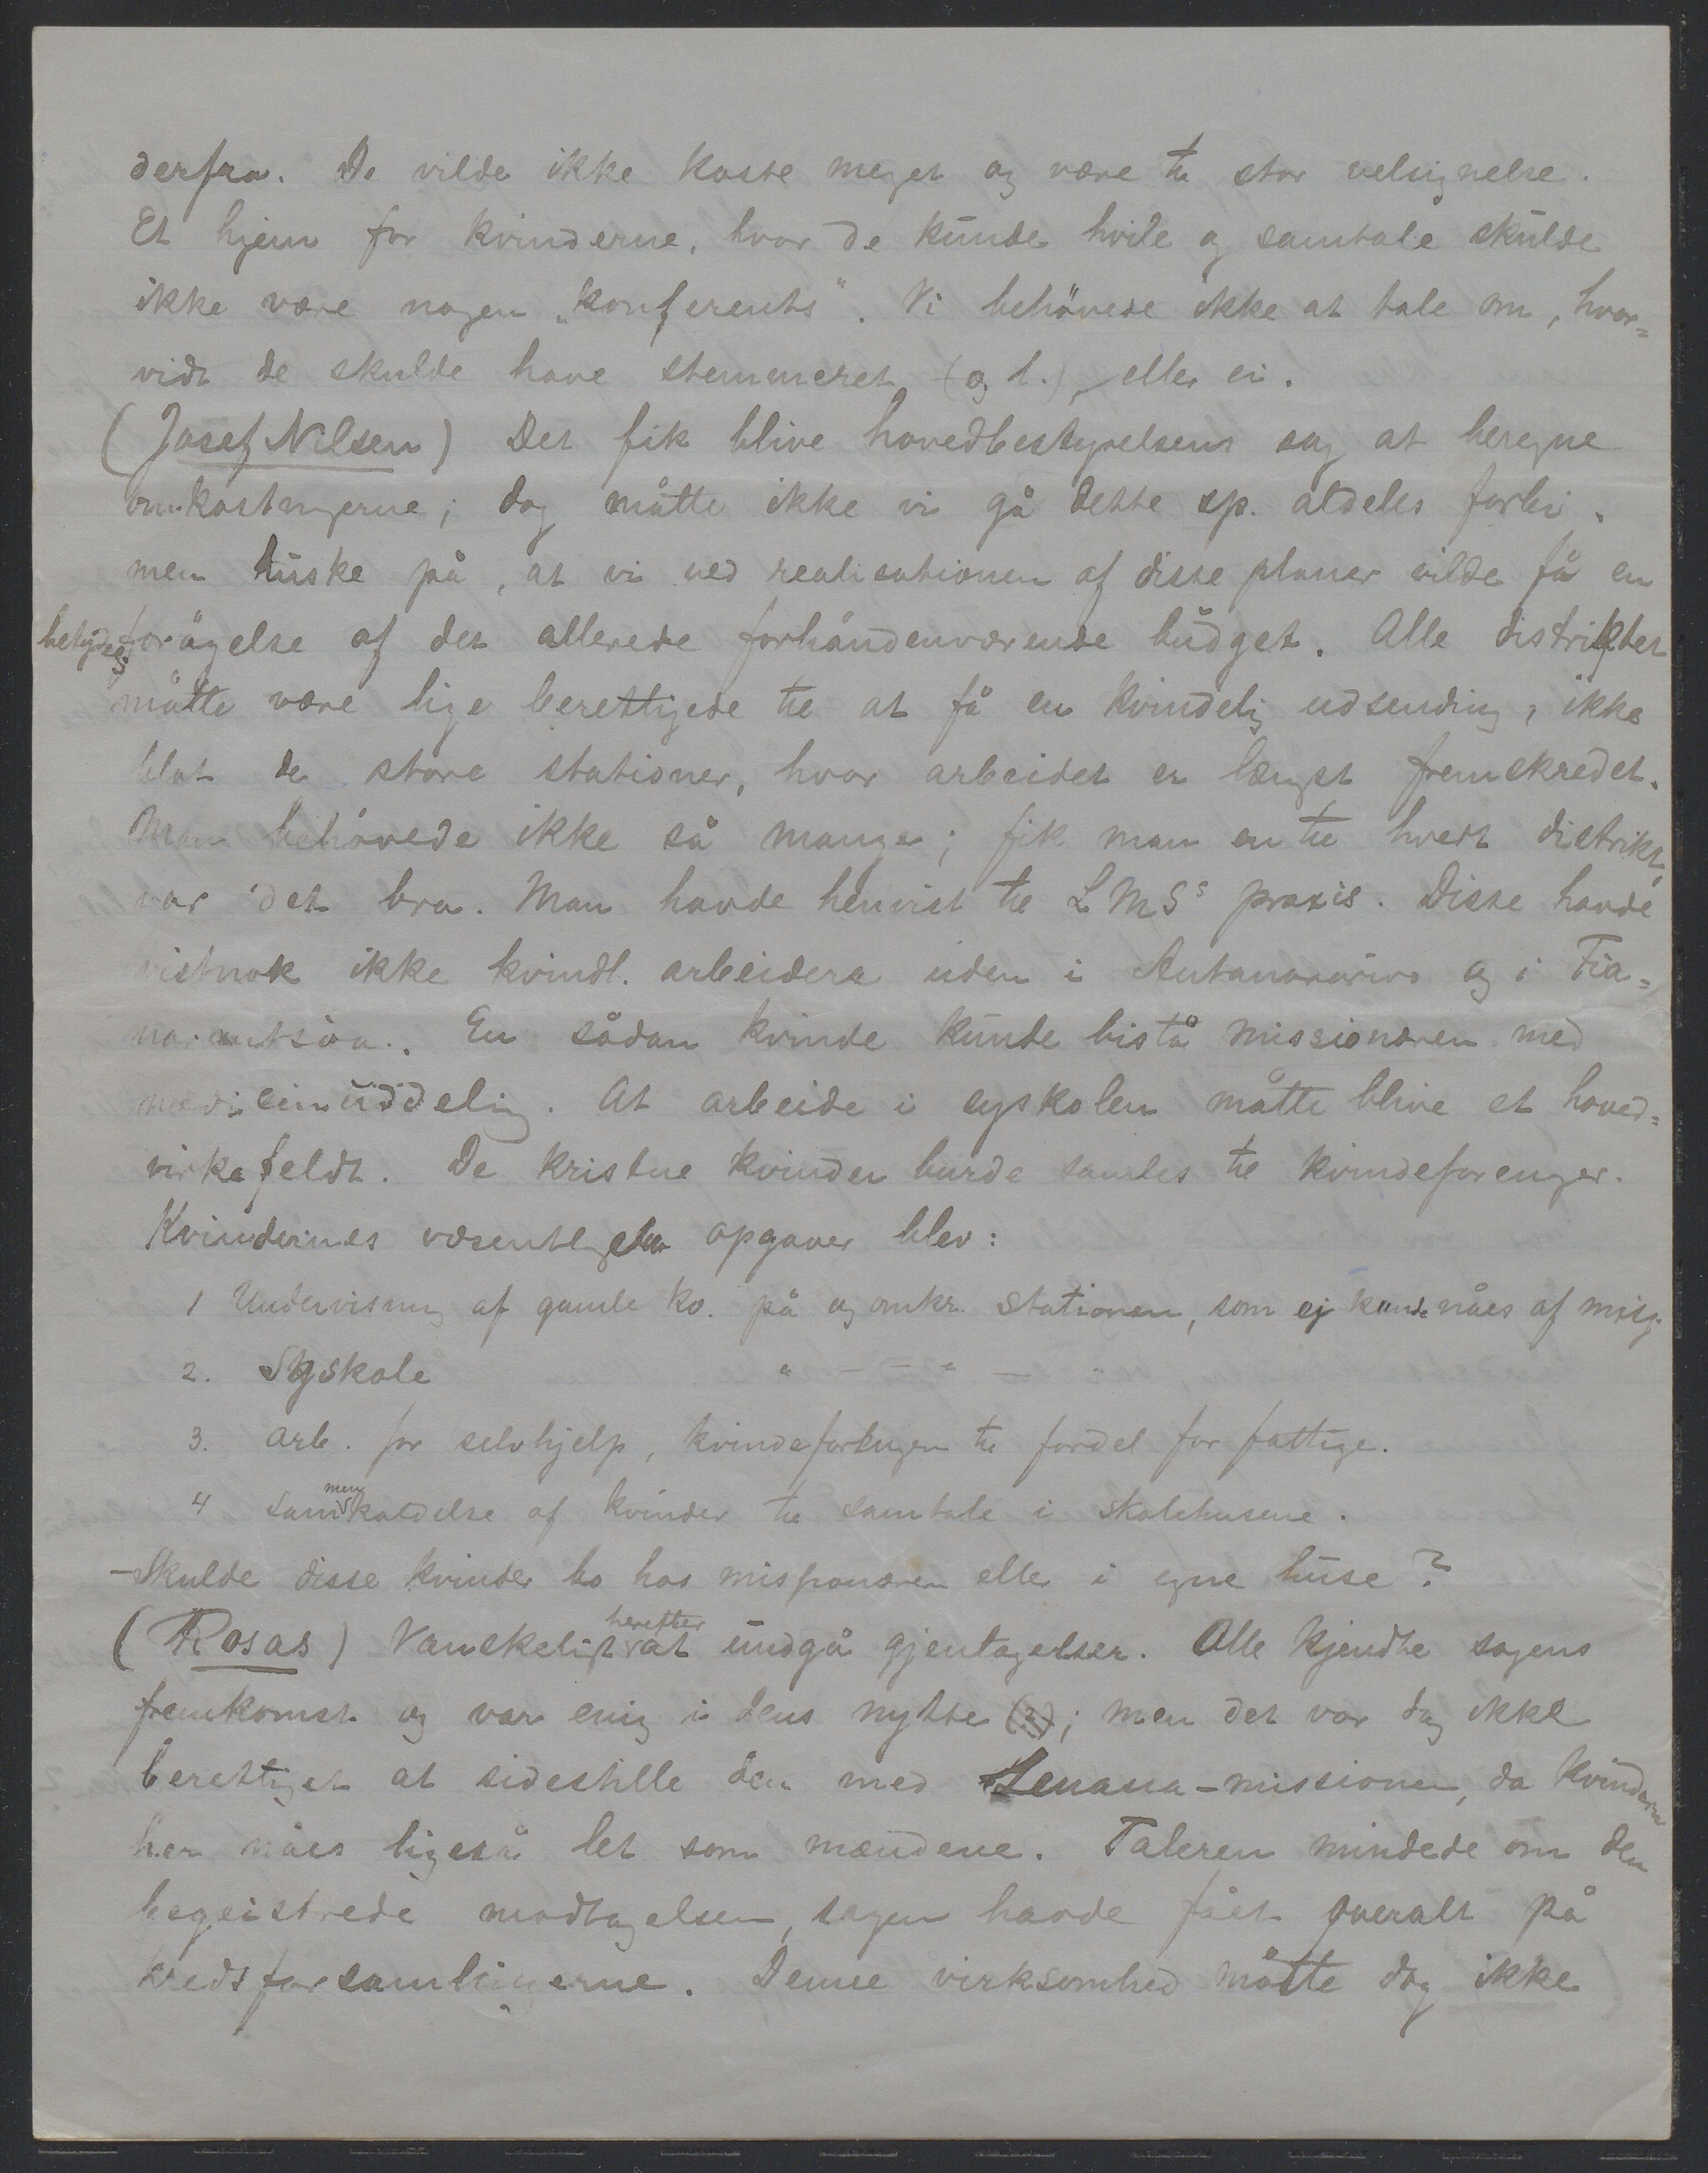 derfra. De vilde ikke koste meget og være til stor velsignelse.
Et hjem for kvinderne, hvor de kunde hvile og samtale skulde
ikke være nogen „konferents“. Vi behövede ikke at tale om, hvor=
vidt de skulde have stemmeret, (og l.), eller ei.
(Josef Nilsen) Det fik blive hovedbestyrelsens sag at beregne
omkostngerne; dog måtte ikke vi gå dette sp. aldeles forbi,
men huske på, at vi ved realisationen af disse planer vilde få en
betydelig forögelse af det allerede forhåndenværende budget. Alle distrikter
måtte være lige berettigede til at få en kvindelig udsending, ikke
blot de store stationer, hvor arbeidet er længst fremskredet.
Man behövede ikke så mange; fik man en til hvert distrikt,
var det bra. Man havde henvist til LMSs praxis. Disse havde
vistnok ikke kvindl. arbeidere uden i Antananarivo og i Fia=
narantsoa. En sådan kvinde kunde bistå missionæren med
medicinuddeling. At arbeide i syskolen måtte blive et hoved=
virkefeldt. De kristne kvinder burde samles til kvindeforenger.
Kvindernes væsentligste opgaver blev:
1 Undervisning af gamle kv. på og omkr. stationen, som ej kunde nåes af misj.
2. Syskole " — — " — "
3. arb. for selvhjelp, kvindeforengen til fordel for fattige.
4 sammenkaldelse af kvinder til samtale i skolehusene.
– Skulde disse kvinder bo hos missionæren eller i egne huse?
(Rosaas) Vanskeligt herefter at undgå gjentagelser. Alle kjendte sagens
fremkomst og var enig i dens nytte (?); men det var dog ikke
berettiget at sidestille den med Zenana-missionen, da kvinderne
her nåes ligeså let som mændene. Taleren mindede om den
begeistrede modtagelsen, sagen havde fået overalt på
kredsforsamlingerne. Denne virksomhed måtte dog ikke